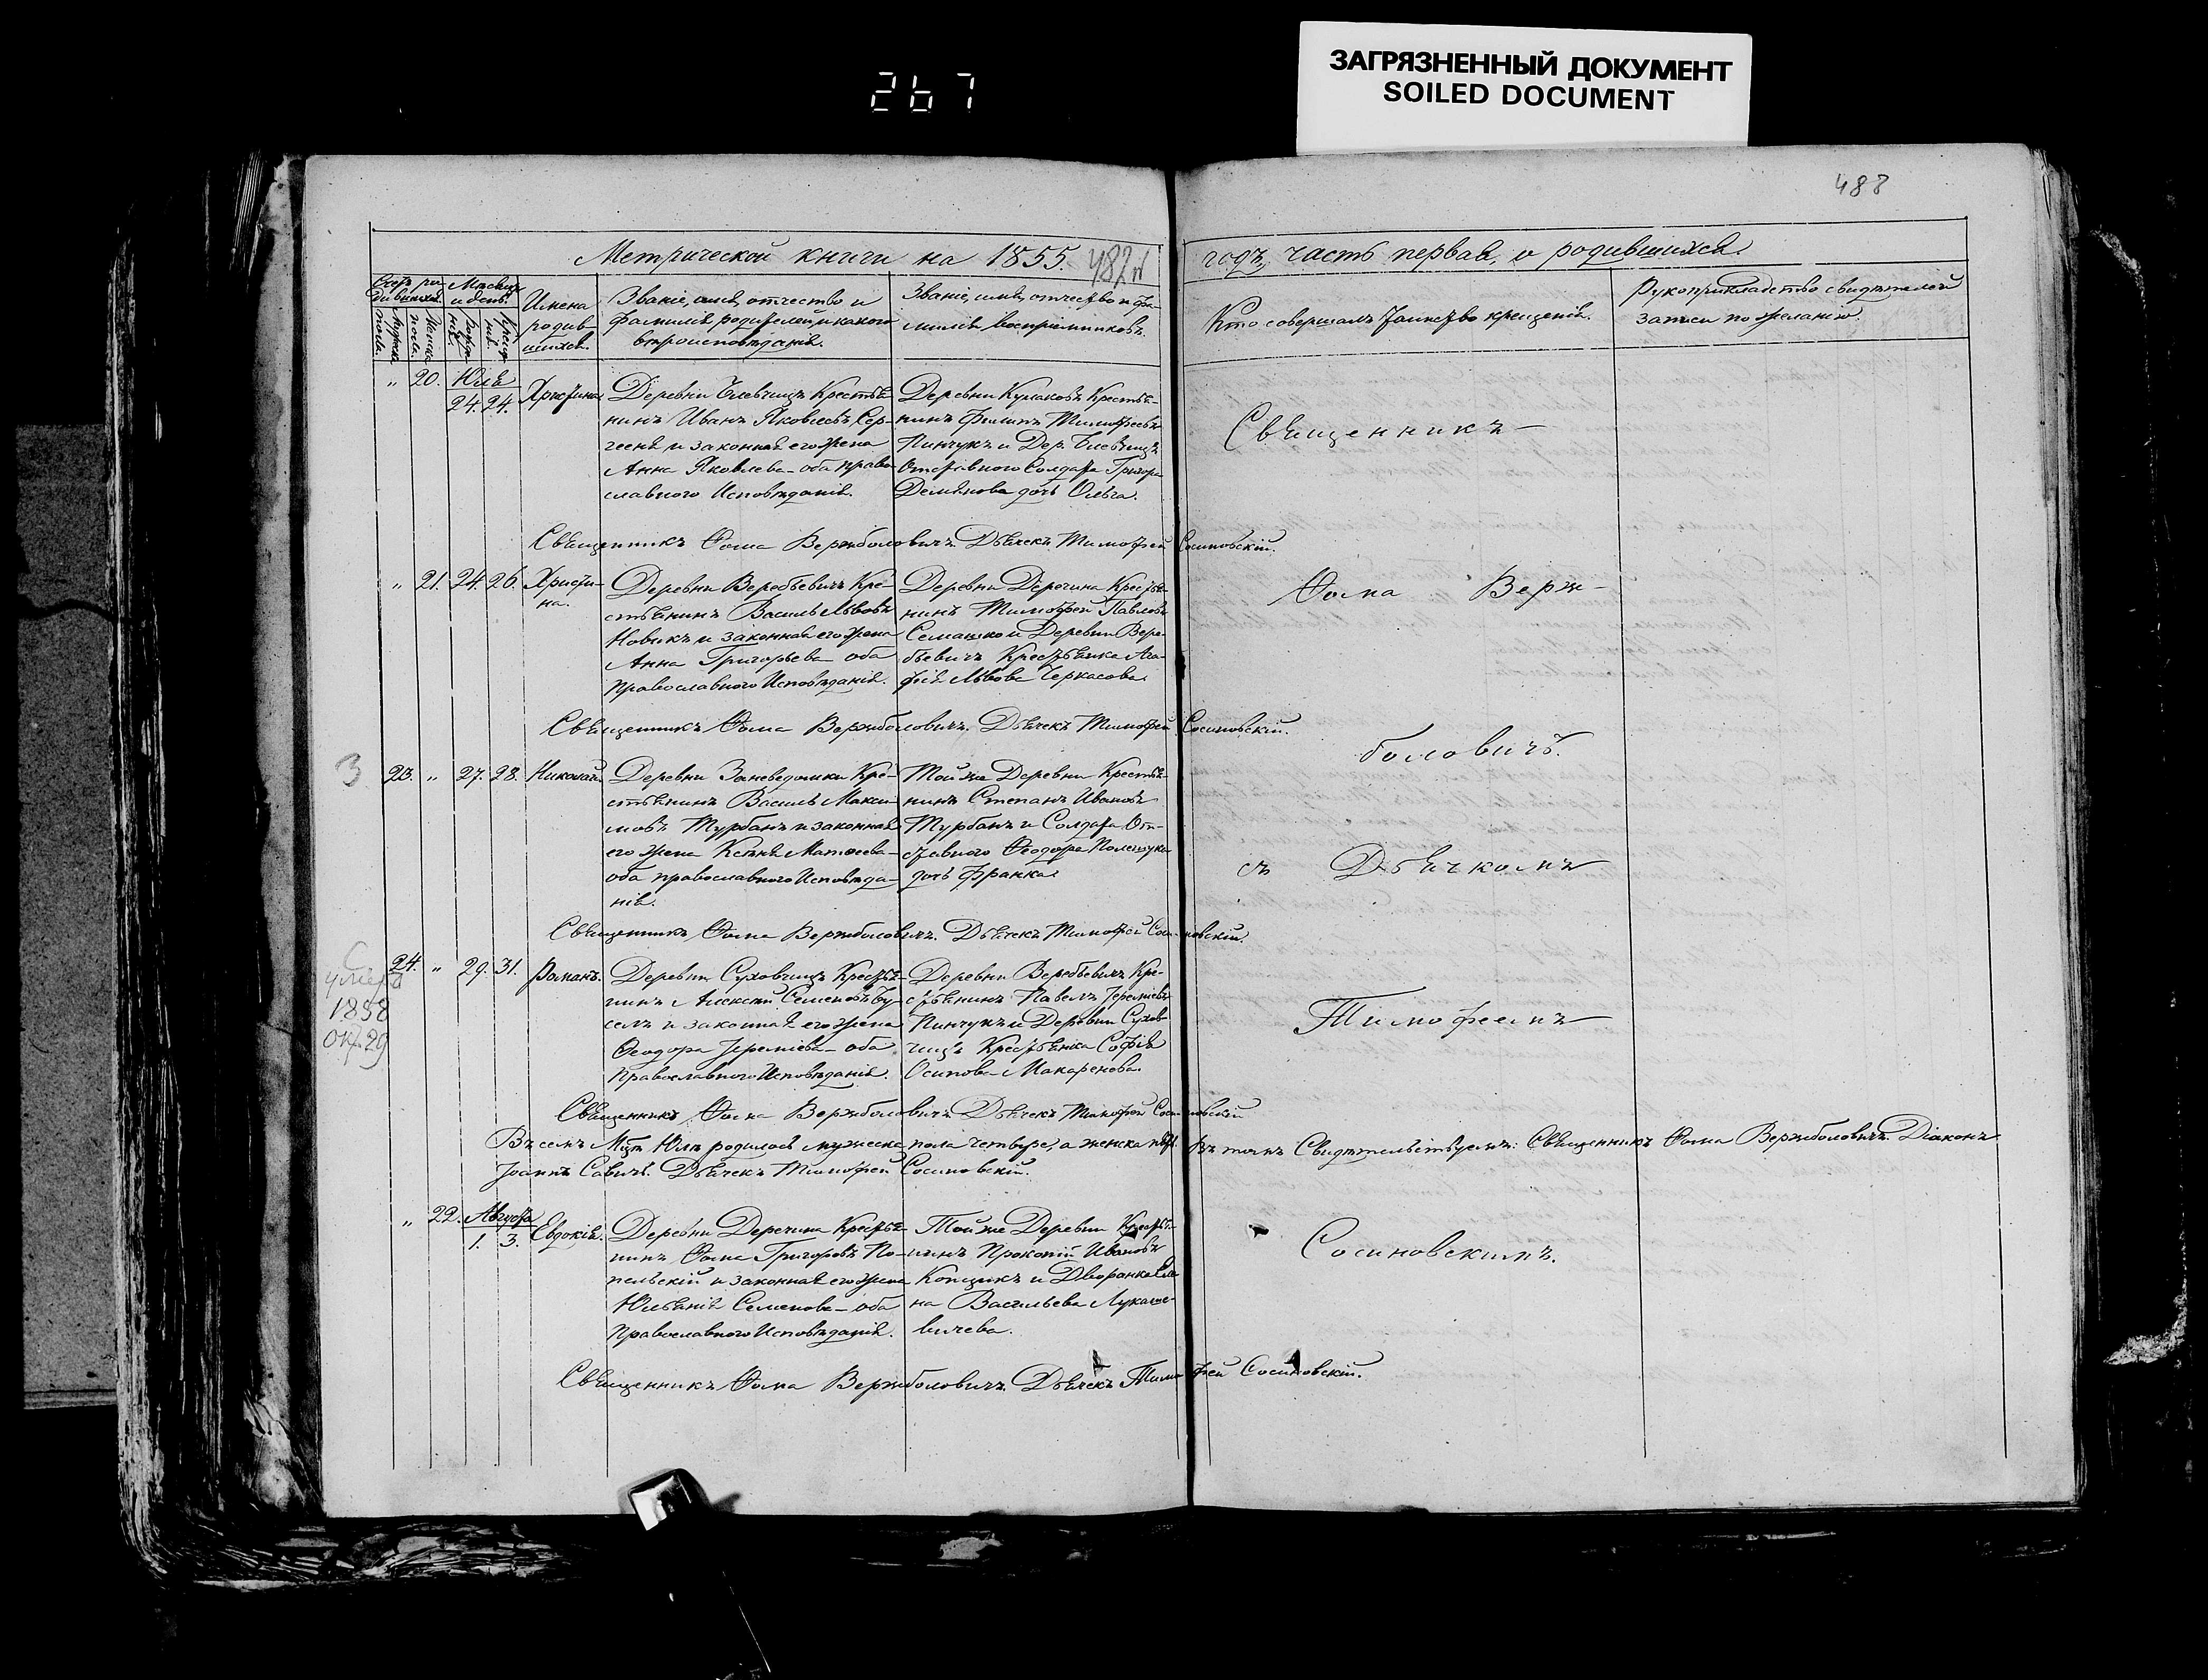 ЗАГРЯЗНЕННЫЙ ДОКУМЕНТ
SOILED DOCUMENT
267
488
Метрической книги на 1855. годъ, часть первая, о родившихся.
Счетъ родившихся.
Мѣсяцъ и день.
Имена родившихся.
Званіе, имя, отчество и
фамилія родителей, и какого
вѣроисповѣданія.
Званіе, имя, отчество и фамилія воспріемниковъ.
Кто совершалъ Таинство крещенія.
Рукоприкладство свидѣтелей
записи по желанію.
„ 20. Юля 24. 24. Христина
Деревни Блевчицъ Крестья-
нинъ Иванъ Яковлевъ Сер-
геня и законная его жена
Анна Яковлева – оба право
славного Исповѣданія.
Деревни Кулаковъ Крестья-
нинъ Филипъ Тимофеевъ
Пинчукъ и Дер. Блевчицъ
Отставного Солдата Григора
Демянова дочь Ольга.
Священникъ Ѳома Вержболовичъ. Дьячекъ Тимофей Сосиновскій.
„ 21. 24. 26. Христи-
на.
Деревни Веребьевичъ Кре-
стьянинъ Василь Львовъ
Новикъ и законная его жена
Анна Григорьева – оба
Православного Исповѣданія.
Деревни Деречина Крестья-
нинъ Тимофей Павловъ
Семашко и Деревни Вере-
бьевичъ Крестьянка Ага-
фія Львова Черкасова.
Священникъ Ѳома Вержболовичъ. Дьячекъ Тимофей Сосиновскій.
3
23. „ 27. 28. Николай
Деревни Заневедомки Кре-
стьянинъ Василь Макси-
мовъ Турбанъ и законная
его жена Ксенія Матѳеева –
оба православного Исповѣда-
нія.
Той же Деревни Крестья-
нинъ Степанъ Ивановъ
Турбанъ и Солдата От-
ставного Ѳеодора Полещука
дочь Франка.
Священникъ Ѳома Вержболовичъ. Дьячекъ Тимофей Сосиновскій.
умеръ
1858
Окт. 29
24. „ 29. 31. Романъ.
Деревни Суховчицъ Крестья-
нинъ Алексѣй Семеновъ Бу-
селъ и законная его жена
Ѳеодора Іереміева – оба
Православного Исповѣданія.
Деревни Веребьевичъ Кре-
стьянинъ Павелъ Іереміевъ
Пинчукъ и Деревни Сухов-
чицъ Крестьянка Софія
Осипова Макаренова.
Священникъ Ѳома Вержболовичъ. Дьячекъ Тимофей Сосиновскій
Въ семъ Мцѣ Юлѣ родилось мужеска пола четверо, а женска Въ томъ Свидѣтельствуемъ: Священникъ Ѳома Вержболовичъ. Діаконъ
Іоаннъ Савичъ. Дьячекъ Тимофей Сосиновскій.
„ 22. Августа 1. 3. Евдокія.
Деревни Деречина Крестья-
нинъ Ѳома Григоровъ По-
пельскій и законная его жена
Юліанія Семенова – оба
Православного Исповѣданія.
Той же Деревни Крестья-
нинъ Прокопій Ивановъ
Копцикъ и Дворянка Еле
на Васильева Лукаше-
вичева.
Священникъ Ѳома Вержболовичъ. Дьячекъ Тимофей Сосиновскій.
Священникъ –
Ѳома Верж-
боловичъ.
съ Дьячкомъ
Тимофеемъ
Сосиновскимъ.